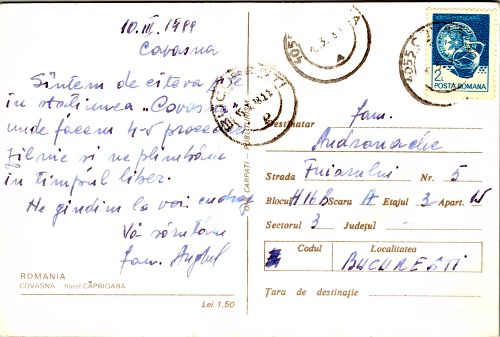 10.III.1989
Covasna
Sîntem de cîteva
în stațiunea „Covas
unde facem 4-5 proced
zilnic și ne plimbăm
în timpul liber.
Ne gîndim la voi cu drag
Vă sărutăm
fam. Anghel
ROMANIA
COVASNA hotel CĂPRIOARA
Lei 1,50
ARTA POPULARA
2L
POSTA ROMANA
4055
BUCUREȘTI
fam.
Destinatar
Andronache
Strada Fuiorului Nr. 5
Blocul H16B Scara A Etajul 3 Apart.
Sectorul 3 Județul
Codul Localitatea
BUCUREȘTI
Țara de destinație